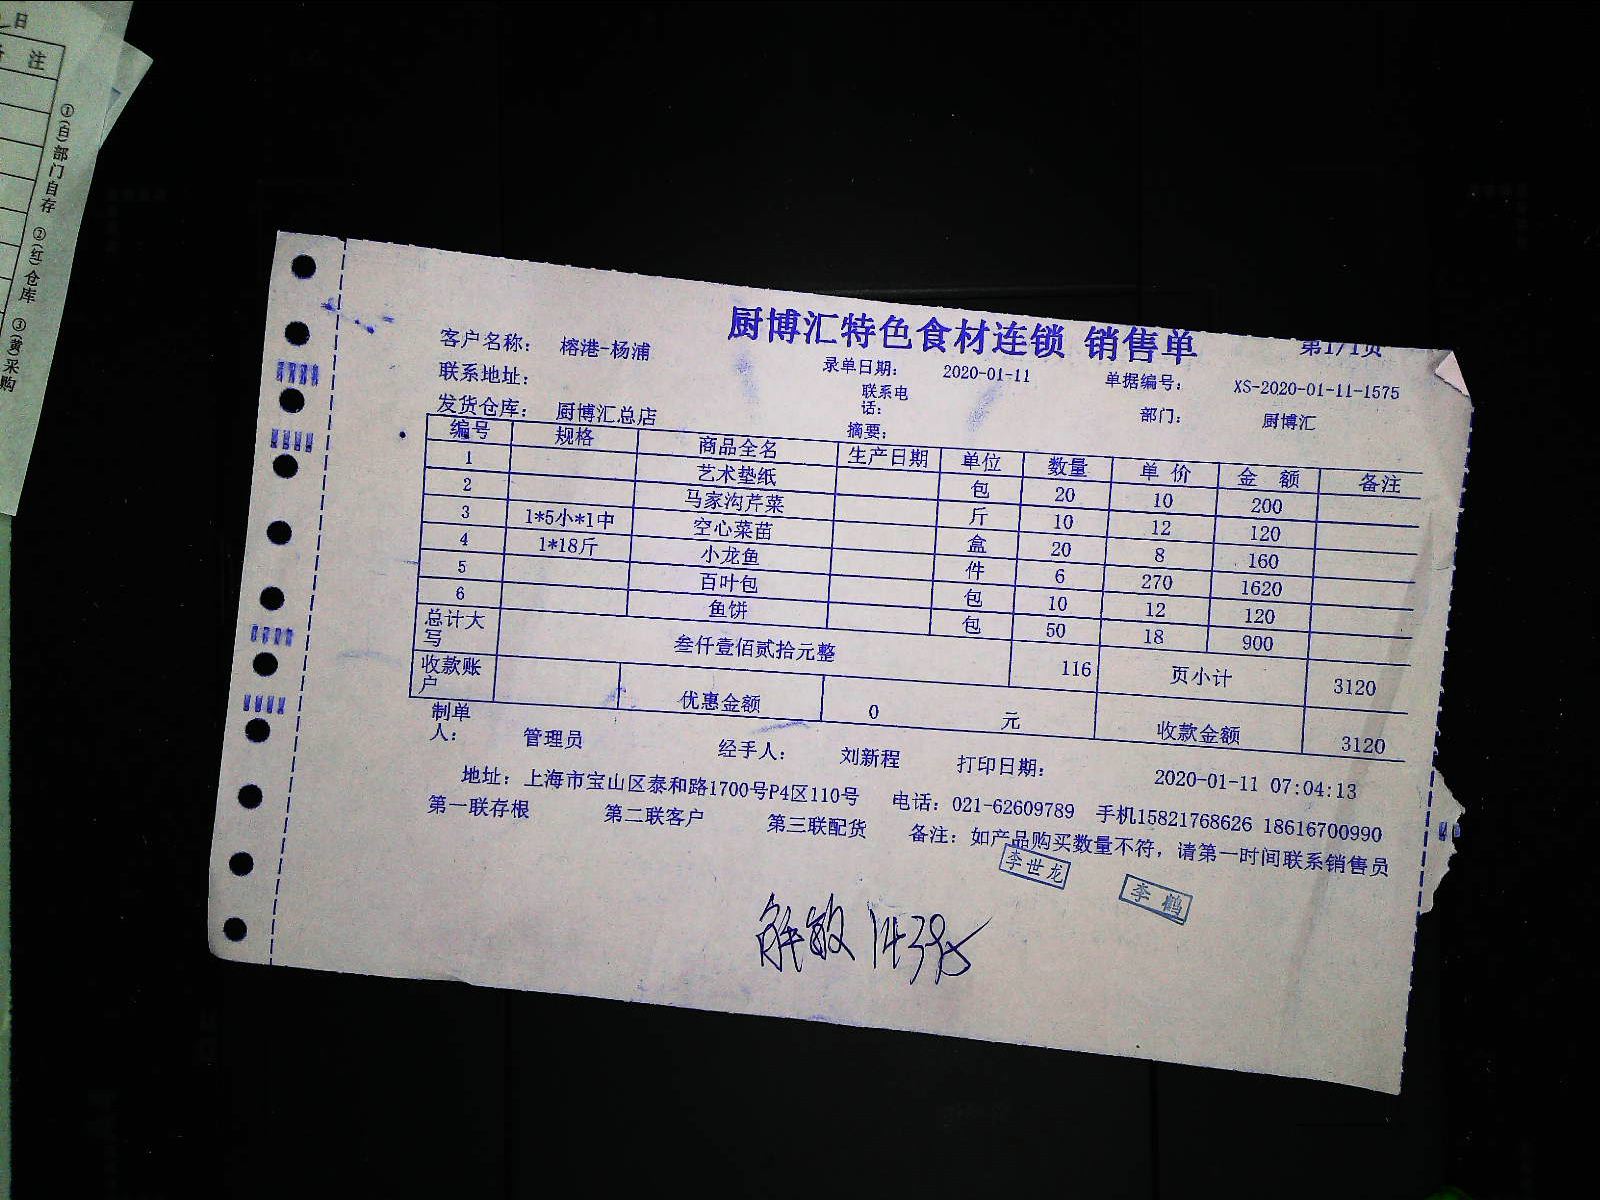 日
注
①(白)部门自存 ②(红)仓库 ③(黄)采购
厨博汇特色食材连锁 销售单 第1/1页
客户名称: 榕港-杨浦 录单日期: 2020-01-11 单据编号: XS-2020-01-11-1575
联系地址: 联系电话: 部门: 厨博汇
发货仓库: 厨博汇总店 摘要:
编号 规格 商品全名 生产日期 单位 数量 单 价 金 额 备注
1 艺术垫纸 包 20 10 200
2 马家沟芹菜 斤 10 12 120
3 1*5小*1中 空心菜苗 盒 20 8 160
4 1*18斤 小龙鱼 件 6 270 1620
5 百叶包 包 10 12 120
6 鱼饼 包 50 18 900
总计大写 叁仟壹佰贰拾元整 116 页小计 3120
收款账户 优惠金额 0 元 收款金额 3120
制单人: 管理员 经手人: 刘新程 打印日期: 2020-01-11 07:04:13
地址: 上海市宝山区泰和路1700号P4区110号 电话: 021-62609789 手机15821768626 18616700990
第一联存根 第二联客户 第三联配货 备注: 如产品购买数量不符, 请第一时间联系销售员
李世龙
李鹤